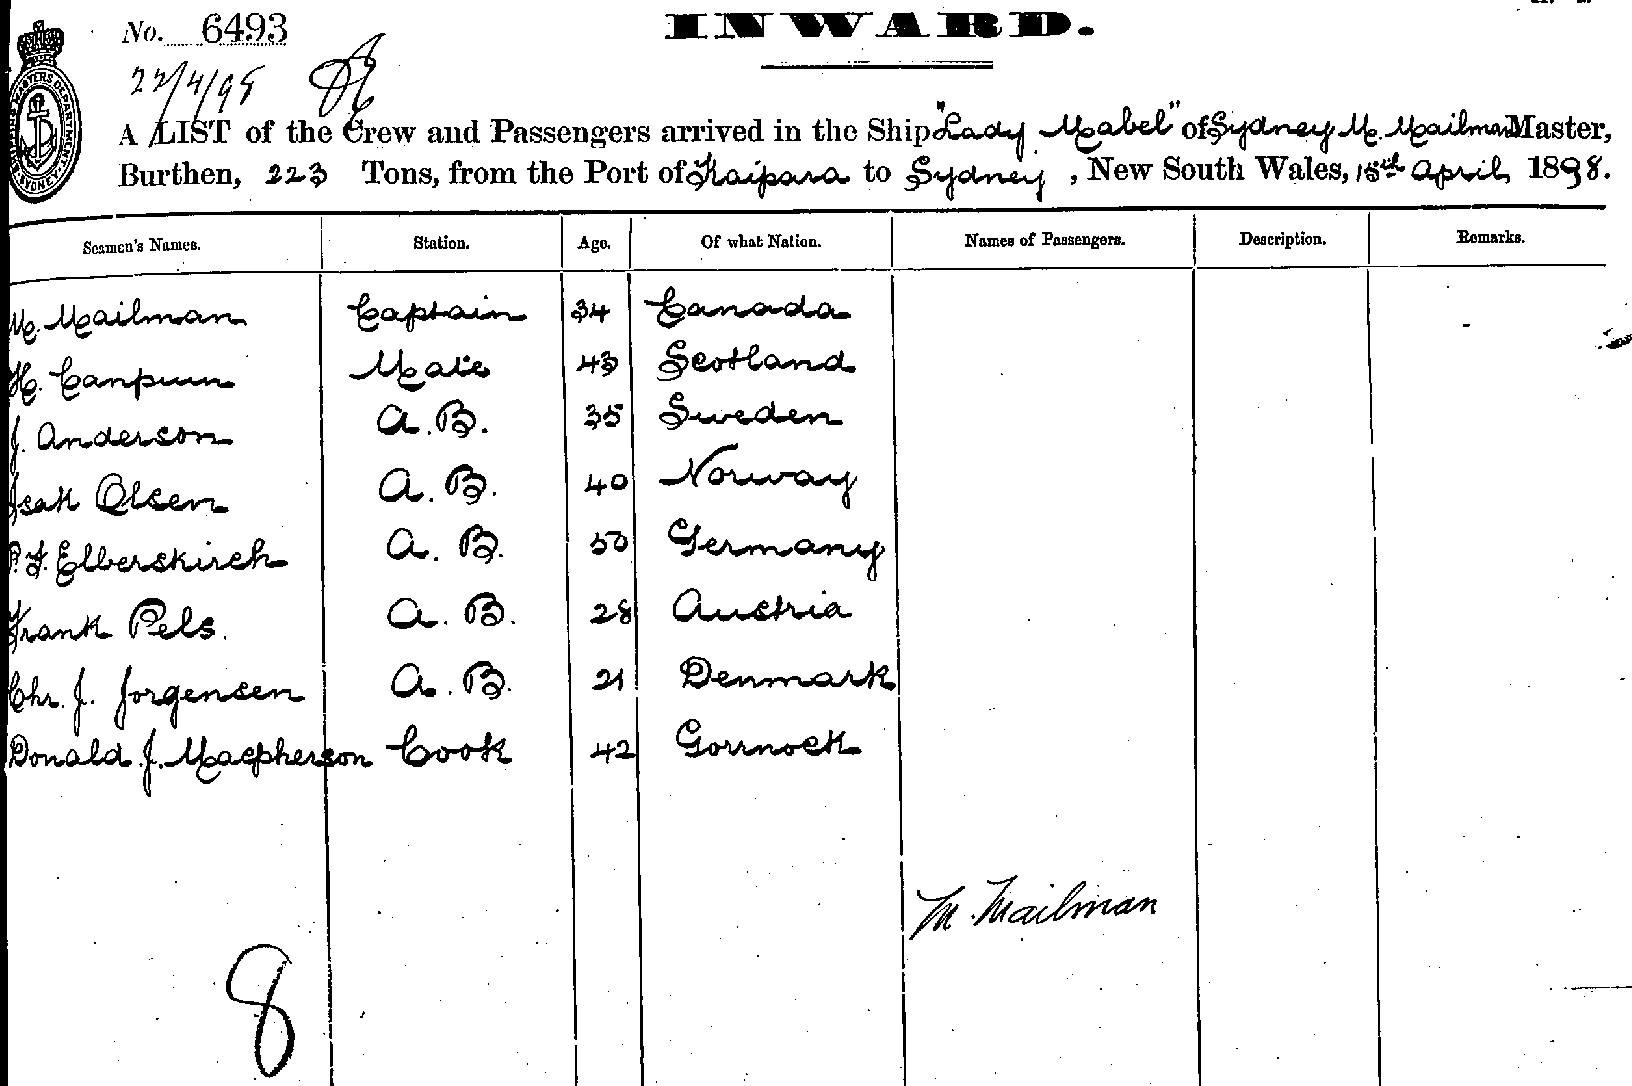 No. 6493
INWARD.
22/4/98
A LIST of the Crew and Passengers arrived in the Ship "Lady Mabel" of Sydney M. Mailman Master,
Burthen, 223 Tons, from the Port of Kaipara to Sydney, New South Wales, 15th April 1898.
Seamen's Names. Station. Age. Of what Nation. Names of Passengers. Description. Remarks.
M. Mailman Captain 34 Canada
H. Mate 43 Scotland
J. Anderson A.B. 35 Sweden
Isak Olsen A.B. 40 Norway
P. J. Elberskirch A.B. 50 Germany
Frank Pels. A.B. 28 Austria
Chr. J. Jorgensen A.B. 21 Denmark
Donald J. Macpherson Cook 42 Gorrnock
M. Mailman
8